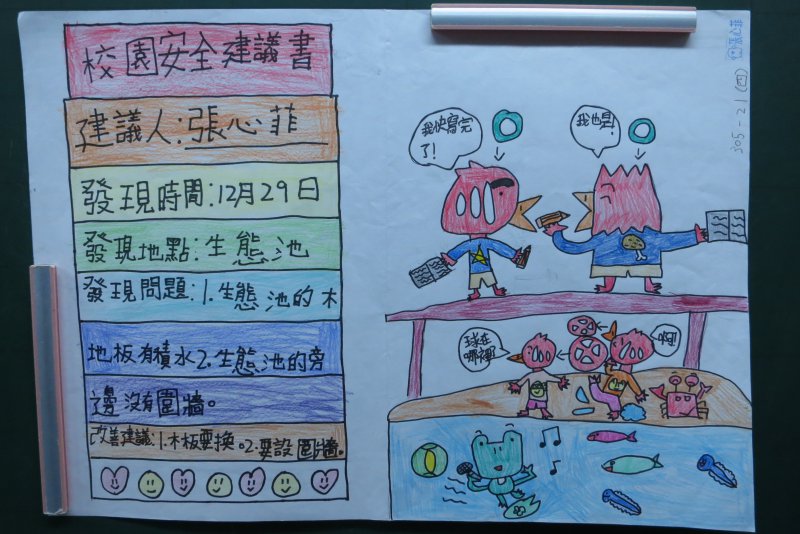 校園安全建議書
建議人:張心菲
發現時間:12月29日
發現地點:生態池
發現問題:1.生態池的木
地板有積水2.生態池的旁
邊沒有圍牆。
改善建議:1.木板要換。2.要設圍牆。
我快寫完
了!
我也是!
球在
哪裡?
啊!
張心菲
305-21(四)